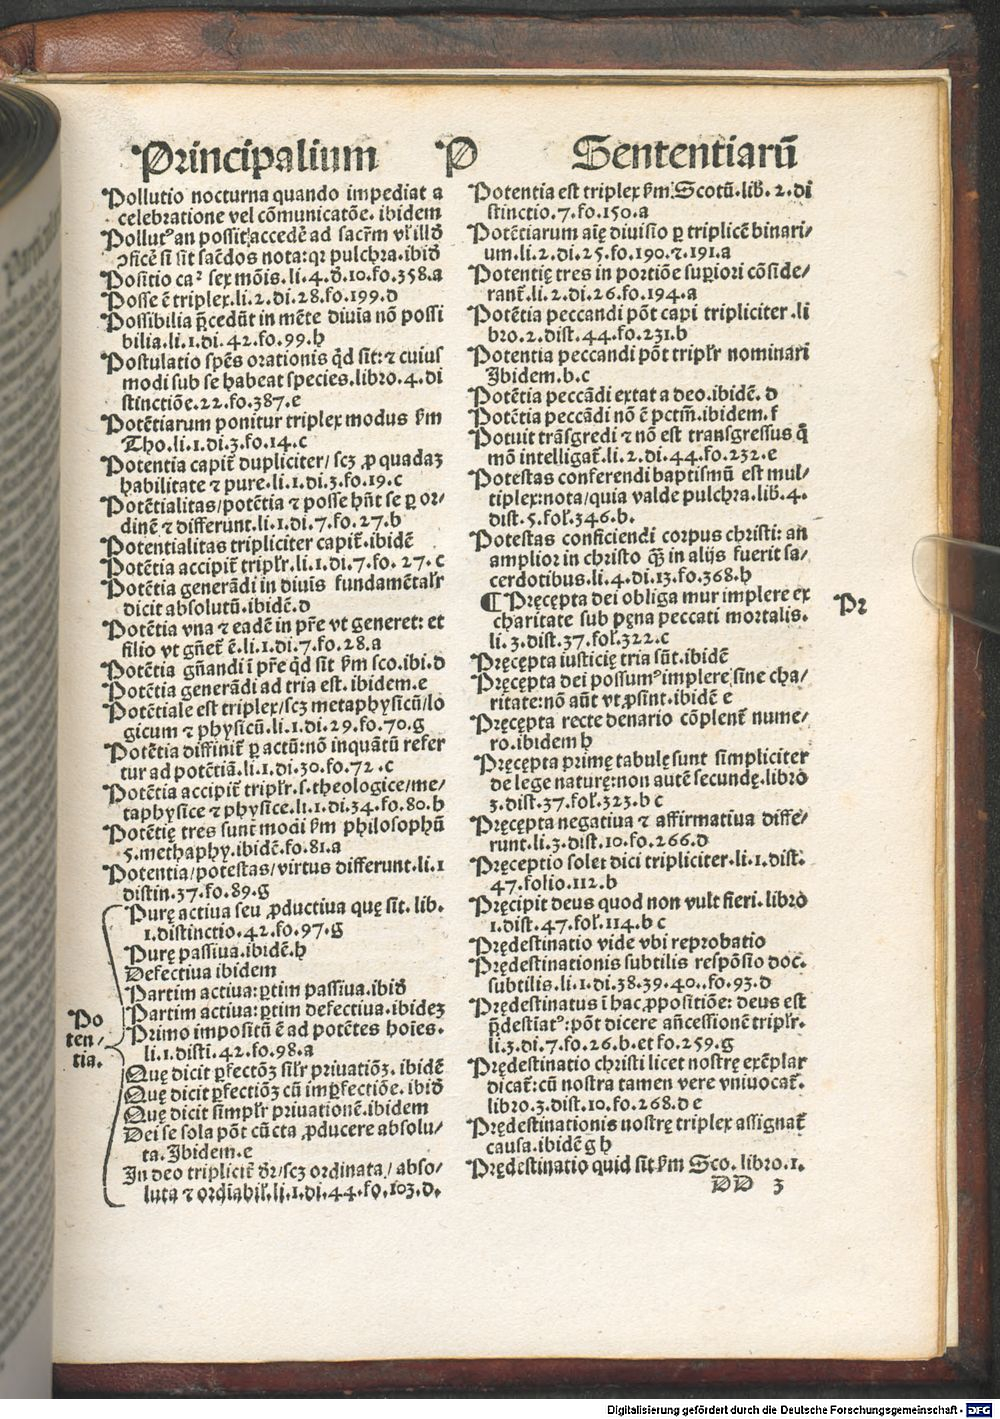 Principalium P Sententiarū
Pollutio nocturna quando impediat a
celebratione vel cōmunicatōe. ibidem
Pollutꝰ an possit accedē ad sacr̄m vl̓ illd̓
ꝯficē si sit sacd̄os nota: qꝛ pulchra. ibid̓
Positio caꝰ sex mōis. li. 4. d̓. 10. fo. 358. a
Posse ē triplex. li. 2. di. 28. fo. 199. d
Possibilia p̄cedūt in mēte diuīa nō possi
bilia. li. 1. di. 42. fo. 99. h
Postulatio sp̄es orationis qd̄ sit: ⁊ cuius
modi sub se habeat species. libro. 4. di
stinctiōe. 22. fo. 387. e
Potētiarum ponitur triplex modus ẜm
Tho. li. 1. di. 3. fo. 14. c
Potentia capit̄ dupliciter/ scꝫ ꝓ quadaꝫ
habilitate ⁊ pure. li. 1. di. 3. fo. 19. c
Potētialitas/ potētia ⁊ posse hn̄t se ꝑ or-
dinē ⁊ differunt. li. 1. di. 7. fo. 27. b
Potentialitas tripliciter capit̄. ibidē
Potētia accipit̄ tripl̓r. li. 1. di. 7. fo. 27. c
Potētia generādi in diuis fundamētal̓r
dicit absolutū. ibidē. d
Potētia vna ⁊ eadē in pr̄e vt generet: et
filio vt gn̄et̄ ē. li. 1. di. 7. fo. 28. a
Potētia gn̄andi ī pr̄e qd̄ sit ẜm sco. ibi. d
Potētia generādi ad tria est. ibidem. e
Potētiale est triplex/ scꝫ metaphysicū/ lo
gicum ⁊ physicū. li. 1. di. 29. fo. 70. g
Potētia diffinit̄ ꝑ actū: nō inquātū refer
tur ad potētiā. li. 1. di. 30. fo. 72. c
Potētia accipit̄ tripl̓r. s. theologice/ me/
taphysice ⁊ physice. li. 1. di. 34. fo. 80. h
Potētię tres sunt modi ẜm philosophū
5. methaphy. ibidē. fo. 81. a
Potentia/ potestas/ virtus differunt. li. 1
distin. 37. fo. 89. g
Po
ten/
tia.
Purę actiua seu ꝓductiua quę sit. lib.
1. distinctio. 42. fo. 97. g
Purę passiua. ibidē. h
Defectiua ibidem
Partim actiua: ꝑtim passiua. ibid̓
Partim actiua: ꝑtim defectiua. ibideꝫ
Primo impositū ē ad potētes hoīes.
li. 1. disti. 42. fo. 98. a
Quę dicit ꝑfectōꝫ sil̓r priuatiōꝫ. ibidē
Quę dicit ꝑfectiōꝫ cū imꝑfectiōe. ibid̓
Quę dicit simpl̓r priuationē. ibidem
Dei se sola pōt cūcta ꝓducere absolu/
ta. Ibidem. e
In deo triplicit̄ d̓r/ scꝫ ordinata/ abso-
luta ⁊ ordīabil̓. li. 1. di. 44. fo. 103. d.
Potentia est triplex ẜm Scotū. lib̓. 2. di
stinctio. 7. fo. 150. a
Potētiarum aię diuisio ꝑ triplicē binari/
um. li. 2. di. 25. fo. 190. ⁊. 191. a
Potentię tres in portiōe suꝑiori cōside/
rant̄. li. 2. di. 26. fo. 194. a
Potētia peccandi pōt capi tripliciter. li
bro. 2. dist. 44. fo. 231. b
Potentia peccandi pōt tripl̓r nominari
Ibidem. b. c
Potētia peccādi extat a deo. ibidē. d
Potētia peccādi nō ē pctm̄. ibidem. f
Potuit trāsgredi ⁊ nō est transgressus q̄
mō intelligat̄. li. 2. di. 44. fo. 232. e
Potestas conferendi baptismū est mul-
tiplex: nota/ quia valde pulchra. lib̓. 4.
dist. 5. fol̓. 346. b.
Potestas conficiendi corpus christi: an
amplior in christo qꝫ̄ in alijs fuerit sa-
cerdotibus. li. 4. di. 13. fo. 368. h
¶ Pręcepta dei obliga mur implere ex
charitate sub pęna peccati mortalis.
li. 3. dist. 37. fol̓. 322. c
Pr
Pręcepta iusticię tria sūt. ibidē
Pręcepta dei possumꝰ implere sine cha/
ritate: nō aūt vt ꝓsint. ibidē e
Pręcepta recte denario cōplent̄ nume/
ro. ibidem h
Pręcepta primę tabulę sunt simpliciter
de lege naturę: non autē secundę. libro
3. dist. 37. fol̓. 323. b c
Pręcepta negatiua ⁊ affirmatiua diffe/
runt. li. 3. dist. 10. fo. 266. d
Pręceptio solet dici tripliciter. li. 1. dist.
47. folio. 112. b
Pręcipit deus quod non vult fieri. libro
1. dist. 47. fol̓. 114. b c
Prędestinatio vide vbi reprobatio
Prędestinationis subtilis respōsio doc.
subtilis. li. 1. di. 38. 39. 40.. fo. 93. d
Prędestinatus ī hac ꝓpositiōe: deus est
p̄destiatꝰ: pōt dicere añcessionē tripl̓r.
li. 3. di. 7. fo. 26. b. et fo. 259. g
Prędestinatio christi licet nostrę exēplar
dicat̄: cū nostra tamen vere vniuocat̄.
libro. 3. dist. 10. fo. 268. d e
Prędestinationis nostrę triplex assignat̄
causa. ibidē g h
Prędestinatio quid sit ẜm Sco. libro. 1.
DD 3
Digitalisierung gefördert durch die Deutsche Forschungsgemeinschaft - DFG